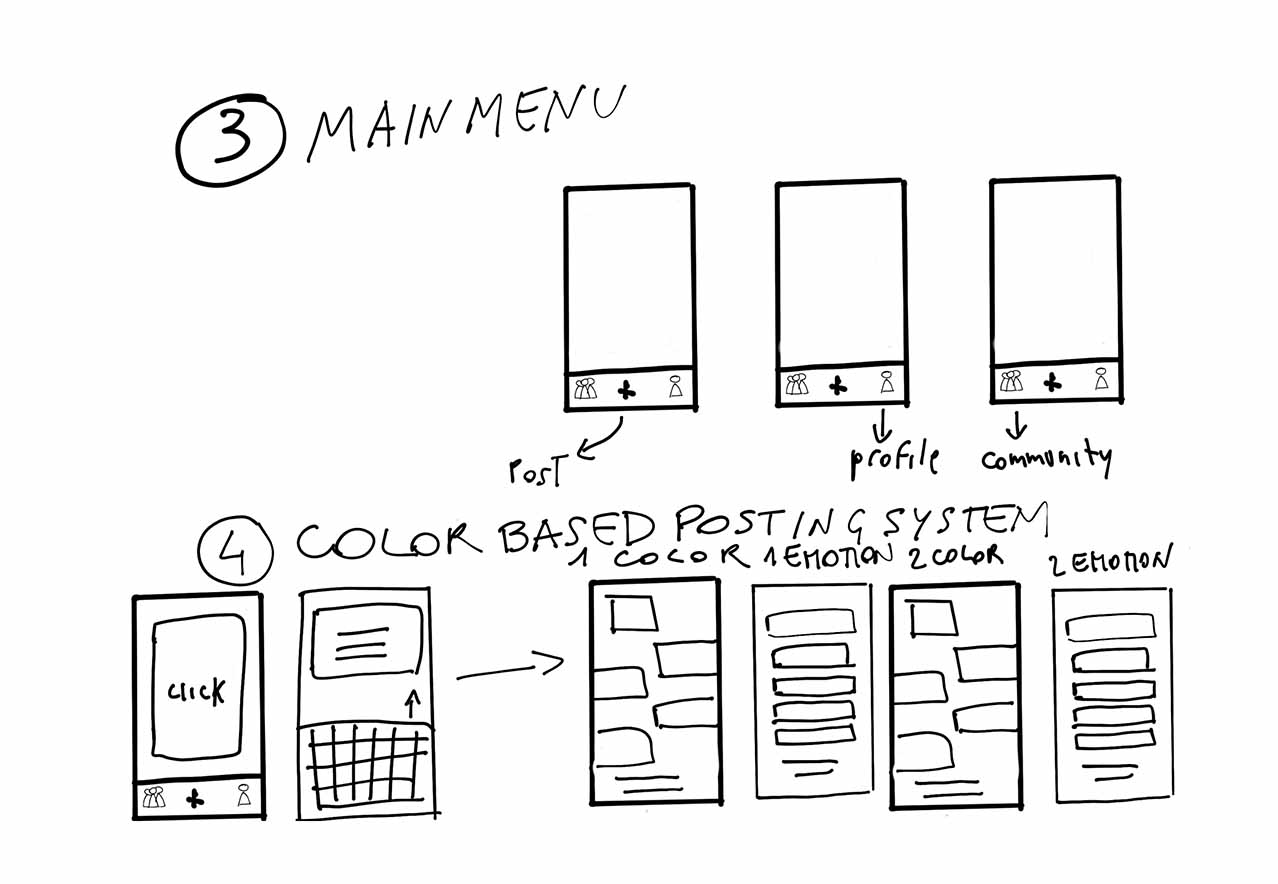 3 MAIN MENU
POST
profile
community
4 COLOR BASED POSTING SYSTEM
1 COLOR 1 EMOTION 2 COLOR 2 EMOTION
CLICK